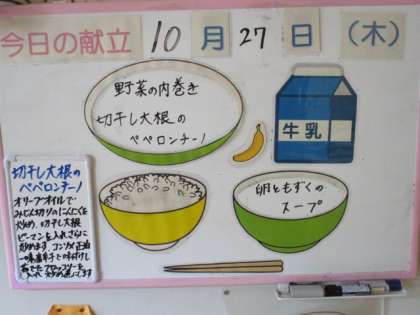 今日の献立 10月27日(木)
野菜の肉巻き
切干し大根の
ペペロンチーノ
牛乳
卵ともずくの
スープ
切干し大根の
ペペロンチーノ
オリーブオイルで
みじん切りのにんにくを
炒め、切干し大根
ピーマンを入れさらに
炒めます。コンソメ、正油
一味唐辛子で味付けし